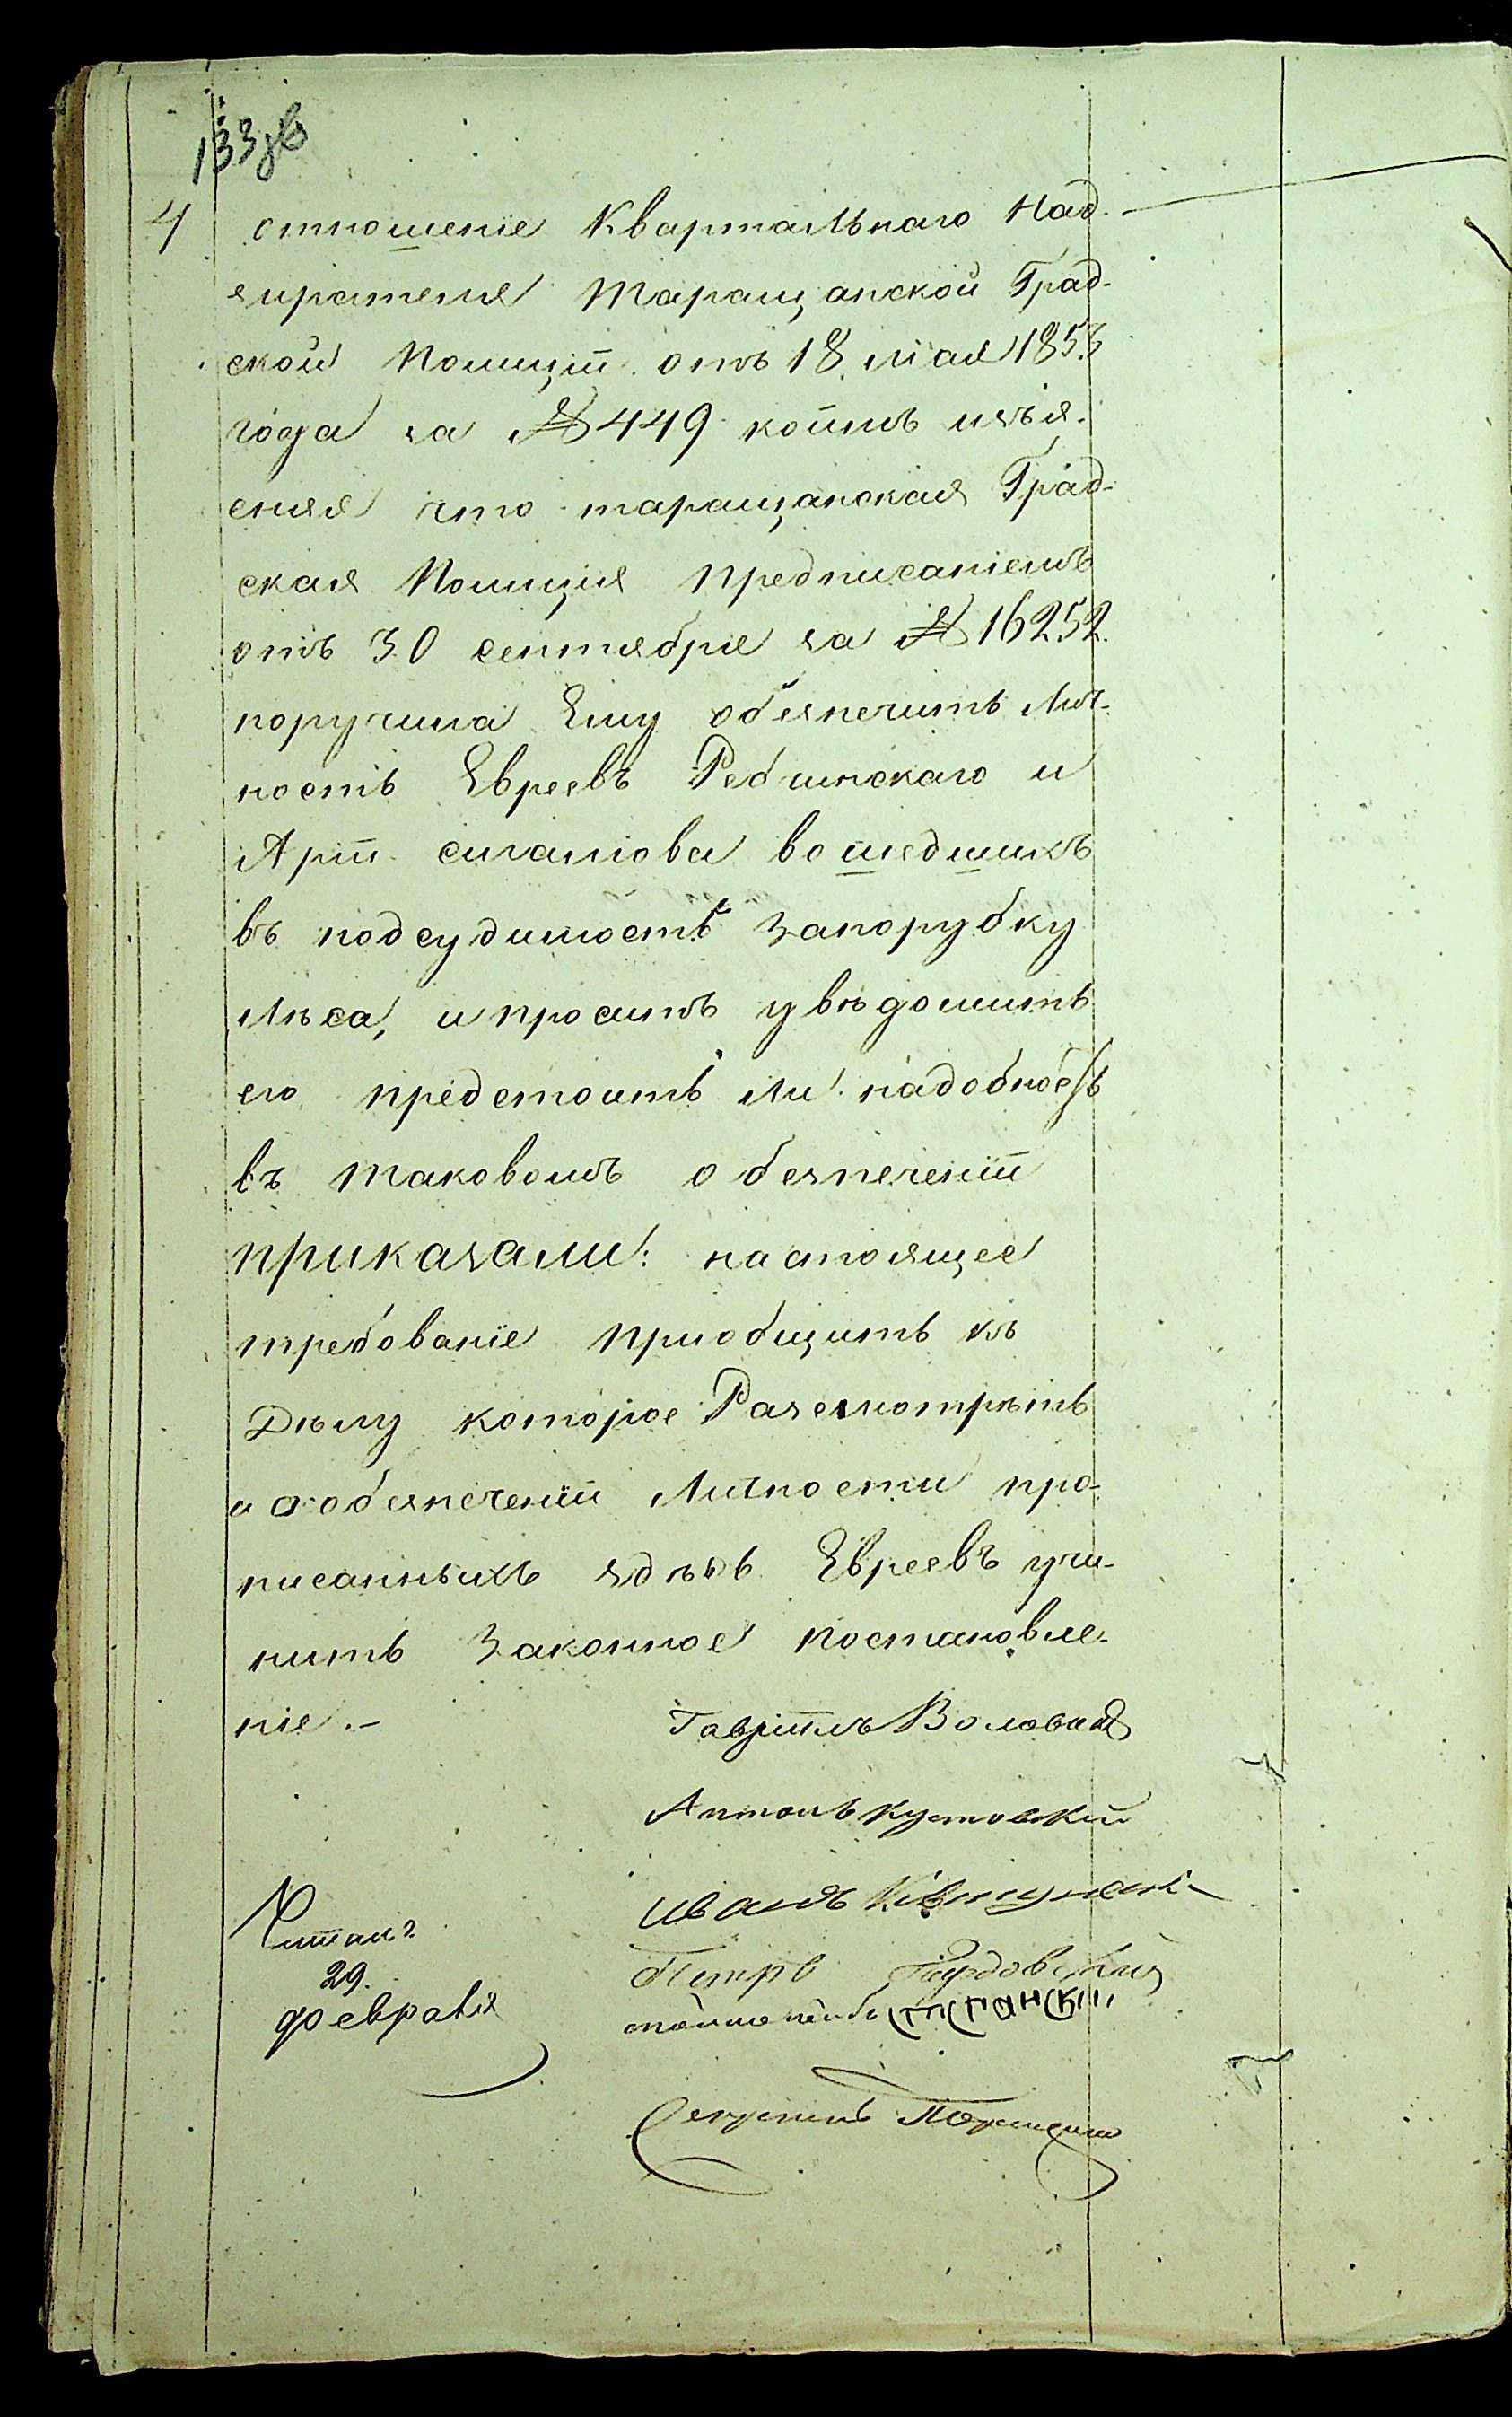 133 зв
4 отношеніе Квартальнаго Над-
зирателя Таращанской Град-
ской Полиціи отъ 18 мая 1853
года за № 449 коимъ изъя-
сняя что таращанская Град-
ская Полиція предписаніемъ
отъ 30 сентября за № 16252
поручила Ему обезпечить Лич-
ность Евреевъ Рабинскаго и
вошедшихъ
въ подсудимость запорубку
Лѣса, и проситъ увѣдомить
его предстоитъ ли надобность
въ таковомъ обезпеченіи
приказали: настоящее
требованіе пріобщить къ
Дѣлу которое Разсмотрѣть
и о обезпеченіи Личности про-
писанныхъ здѣсь Евреевъ учи-
нить Законное постановле-
ніе.-
Гавріилъ
Антонъ Кустовскій
Иванъ
Петръ
Читалъ
29.
февраля
Секретарь